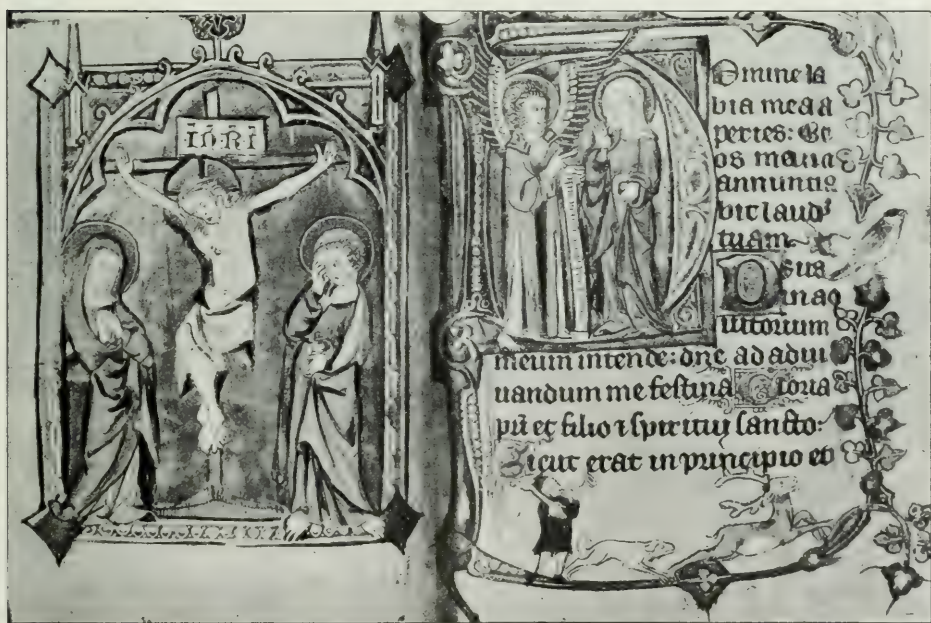 IÑ·RI
Domine la
bia mea a
peries: Et
os meum
annuntia
bit laudẽ
tuam
Deus in a
utorium
meum intende: dñe ad adiu
uandum me festina Gloria
pri et filio ⁊ spiritui sancto:
Sicut erat in principio et